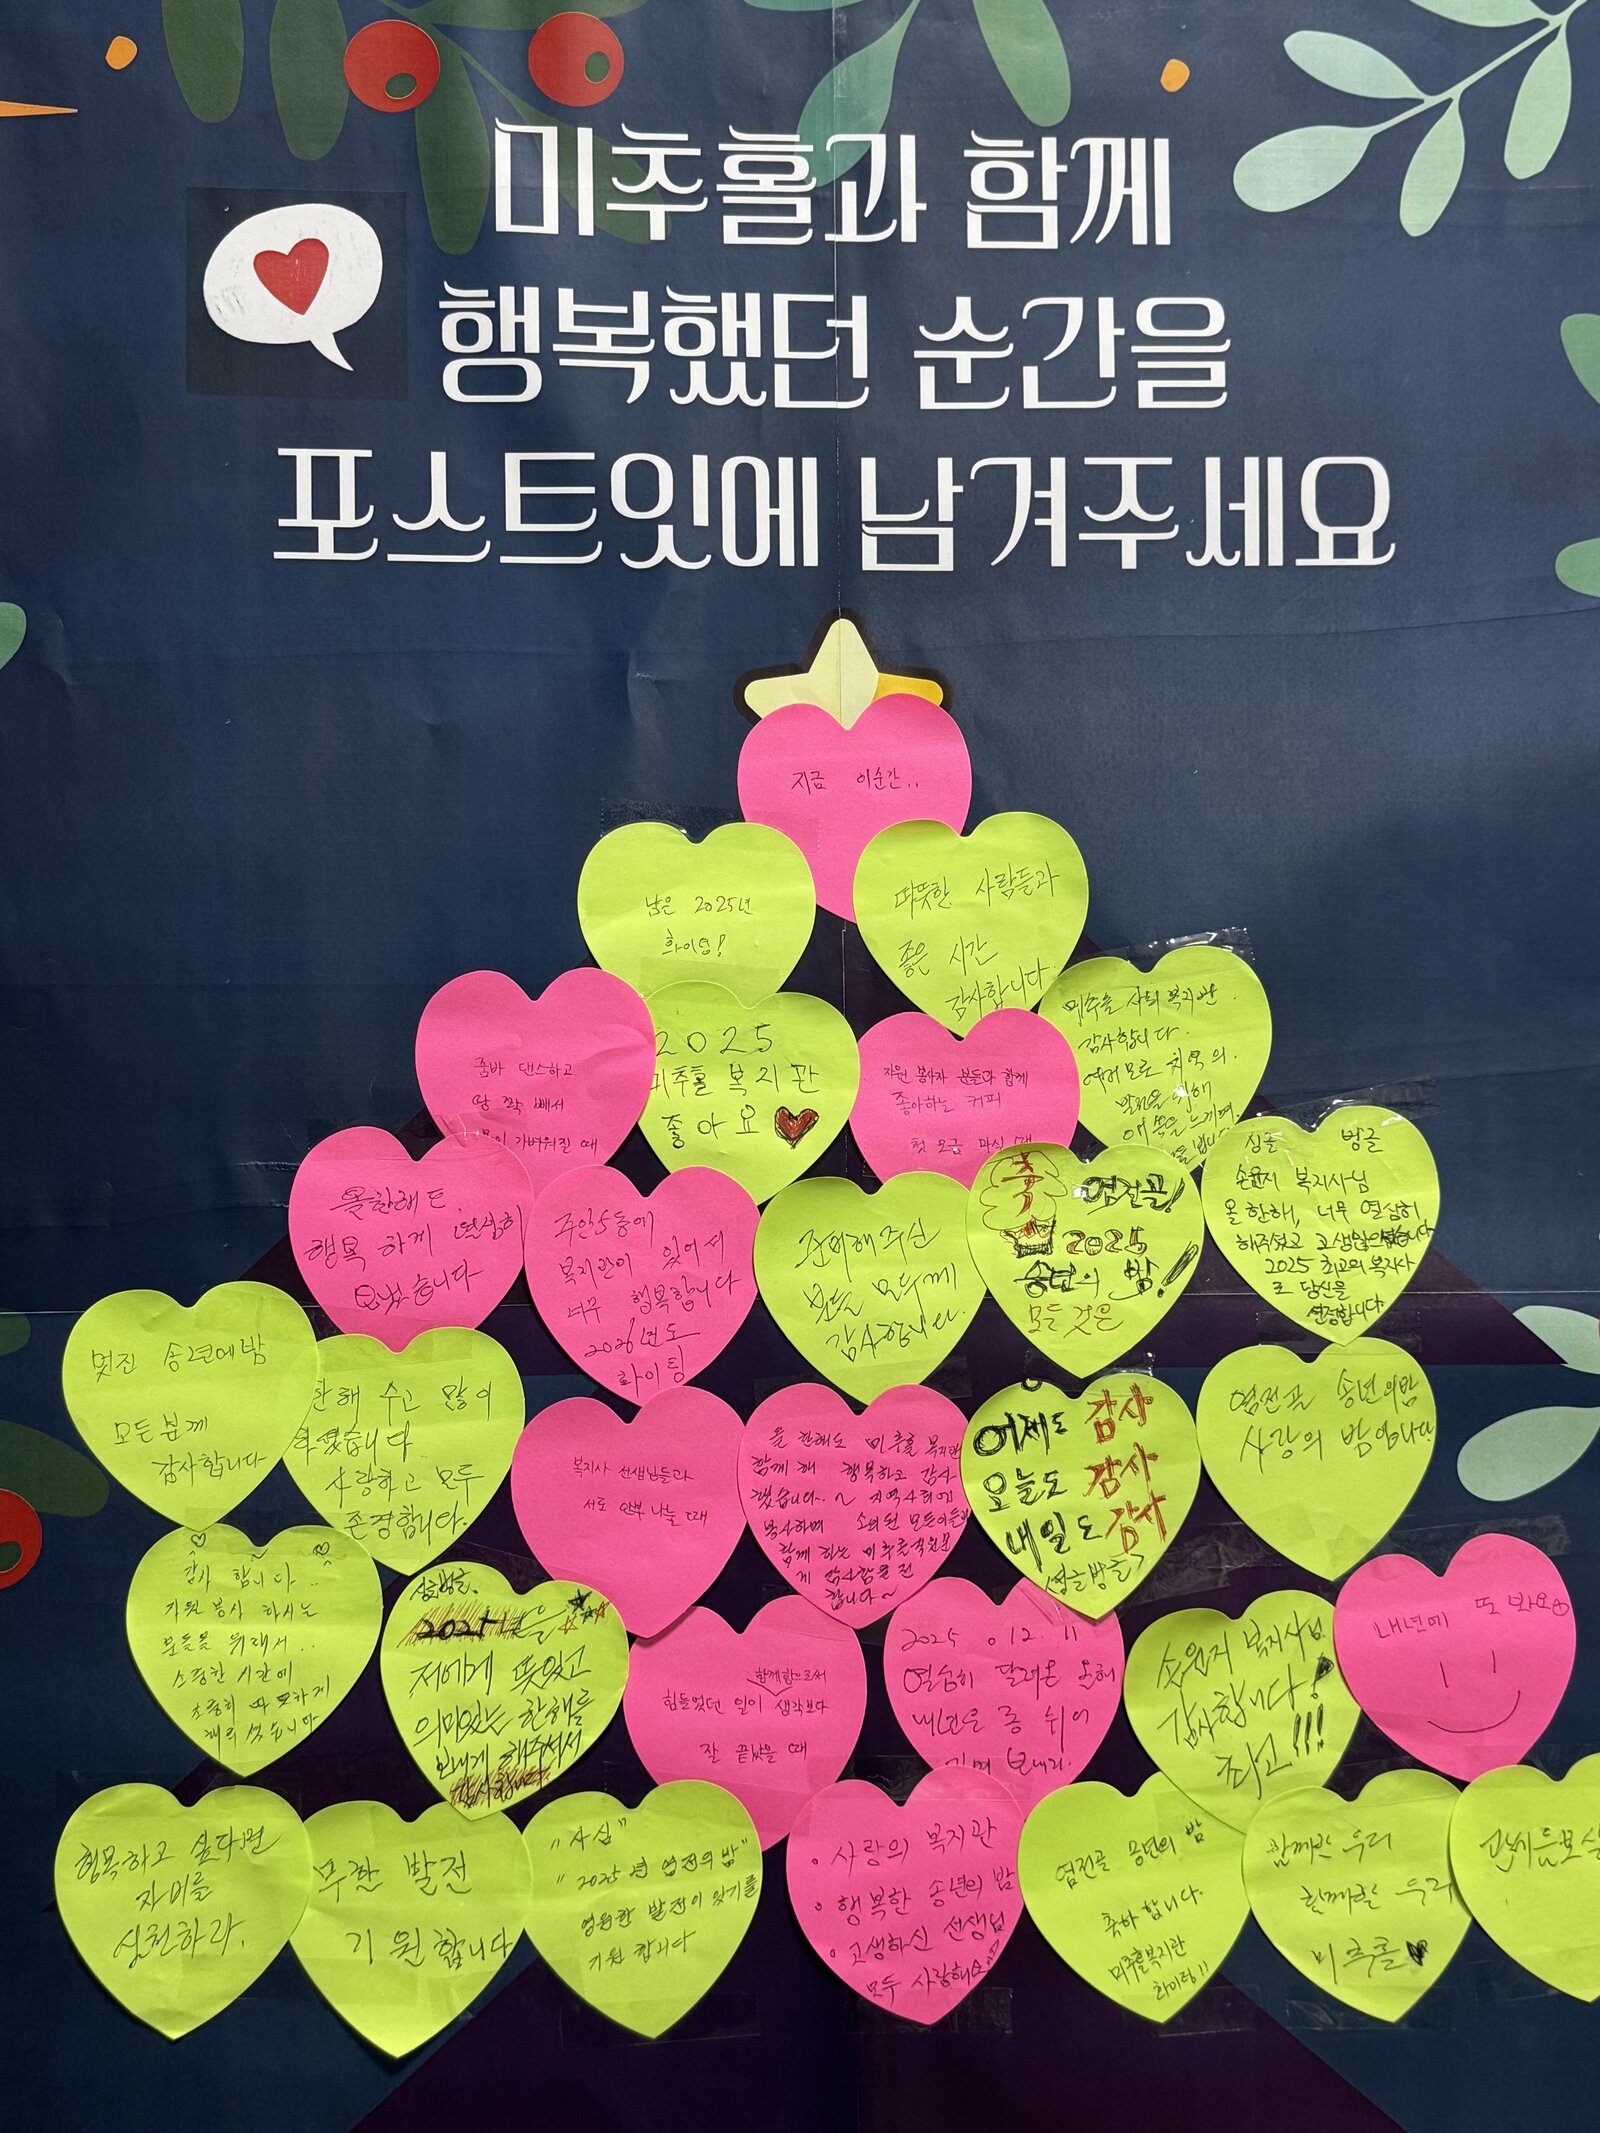 미추홀과 함께
행복했던 순간을
포스트잇에 남겨주세요
지금 이순간..
남은 2025년
화이팅!
따뜻한 사람들과
좋은 시간
감사합니다.
미추홀 사회복지관.
감사합니다.
여러모로 지역의.
발전을 위해
줌바 댄스하고
땀 쫙 빼서
몸이 가벼워질 때
2025
미추홀 복지관
좋아요
자원 봉사자 분들과 함께
좋아하는 커피
첫 모금 마실 때
올한해도
행복하게 열심히
살았습니다
주안5동에
복지관이 있어서
너무 행복합니다
2026년도
화이팅
준비해주신
분들 모두께
감사합니다.
축 염전골!
2025
송년의 밤!
모든 것은
싱글 벙글
손윤지 복지사님
올 한해, 너무 열심히
해주셨고 고생많으셨습니다
2025 최고의 복지사
로 당신을
선정합니다.
멋진 송년에밤
모든분께
감사합니다
한해 수고 많이
하셨습니다..
사랑하고 모두
존경합니다.
복지사 선생님들과
서로 안부 나눌 때
올 한해도 미추홀 복지관
함께 해 행복하고 감사
했습니다.~ 지역사회에
봉사하며 소외된 모든이들과
함께 하는 미추홀 직원분
께 감사함을 전
합니다~
어제도 감사
오늘도 감사
내일도 감사
싱글벙글
염전골 송년의밤
사랑의 밤입니다.
감사 합니다..
자원 봉사 하시는
분들을 위해서..
소중한 시간에
소중히 따뜻하게
싱글벙글.
2025년을
저에게 뜻있고
의미있는 한해를
보내게 해주셔서
감사합니다
함께함으로써
힘들었던 일이 생각보다
잘 끝났을 때
2025.12.11
열심히 달려온 올해
내년은 좀 쉬어
가며 보내리.
손윤지 복지사님
감사합니다!
최고!!!
내년에 또 봐요
행복하고 싶다면
자비를
실천하라.
무한 발전
기원합니다
"사심"
"2025년 염전의 밤"
영원한 발전이 있기를
기원 합니다
• 사랑의 복지관
• 행복한 송년의 밤
• 고생하신 선생님
모두 사랑해요
염전골 송년의 밤
축하합니다.
미추홀복지관
화이팅!!
함께한 우리
함께할 우리
미추홀